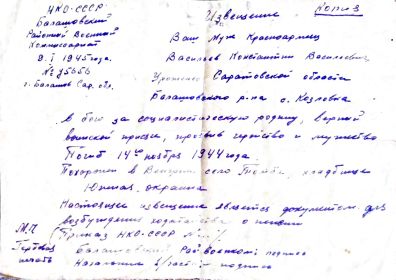 НКО-СССР
Балашовский
Районный Военный
Комиссариат
9. I 1945 года.
г. Балашов Сар. обл.
Извещение
Копия
Ваш Муж Красноармеец
Васильев Константин Васильевич
Саратовской области
Балашовского р-на с. Козловка
в бою за социалистическую родину, верный
воинской присяге, проявив геройство и мужество
Погиб 14го ноября 1944 года
Похоронен в Венгрии село кладбище
Южная окраина
Настоящее извещение является документом для
возбуждения ходатайства о пенсии
(Приказ НКО-СССР №
М.П.
Гербовая
печать
Балашовский Райвоенком: подпись
Начальник части подпись